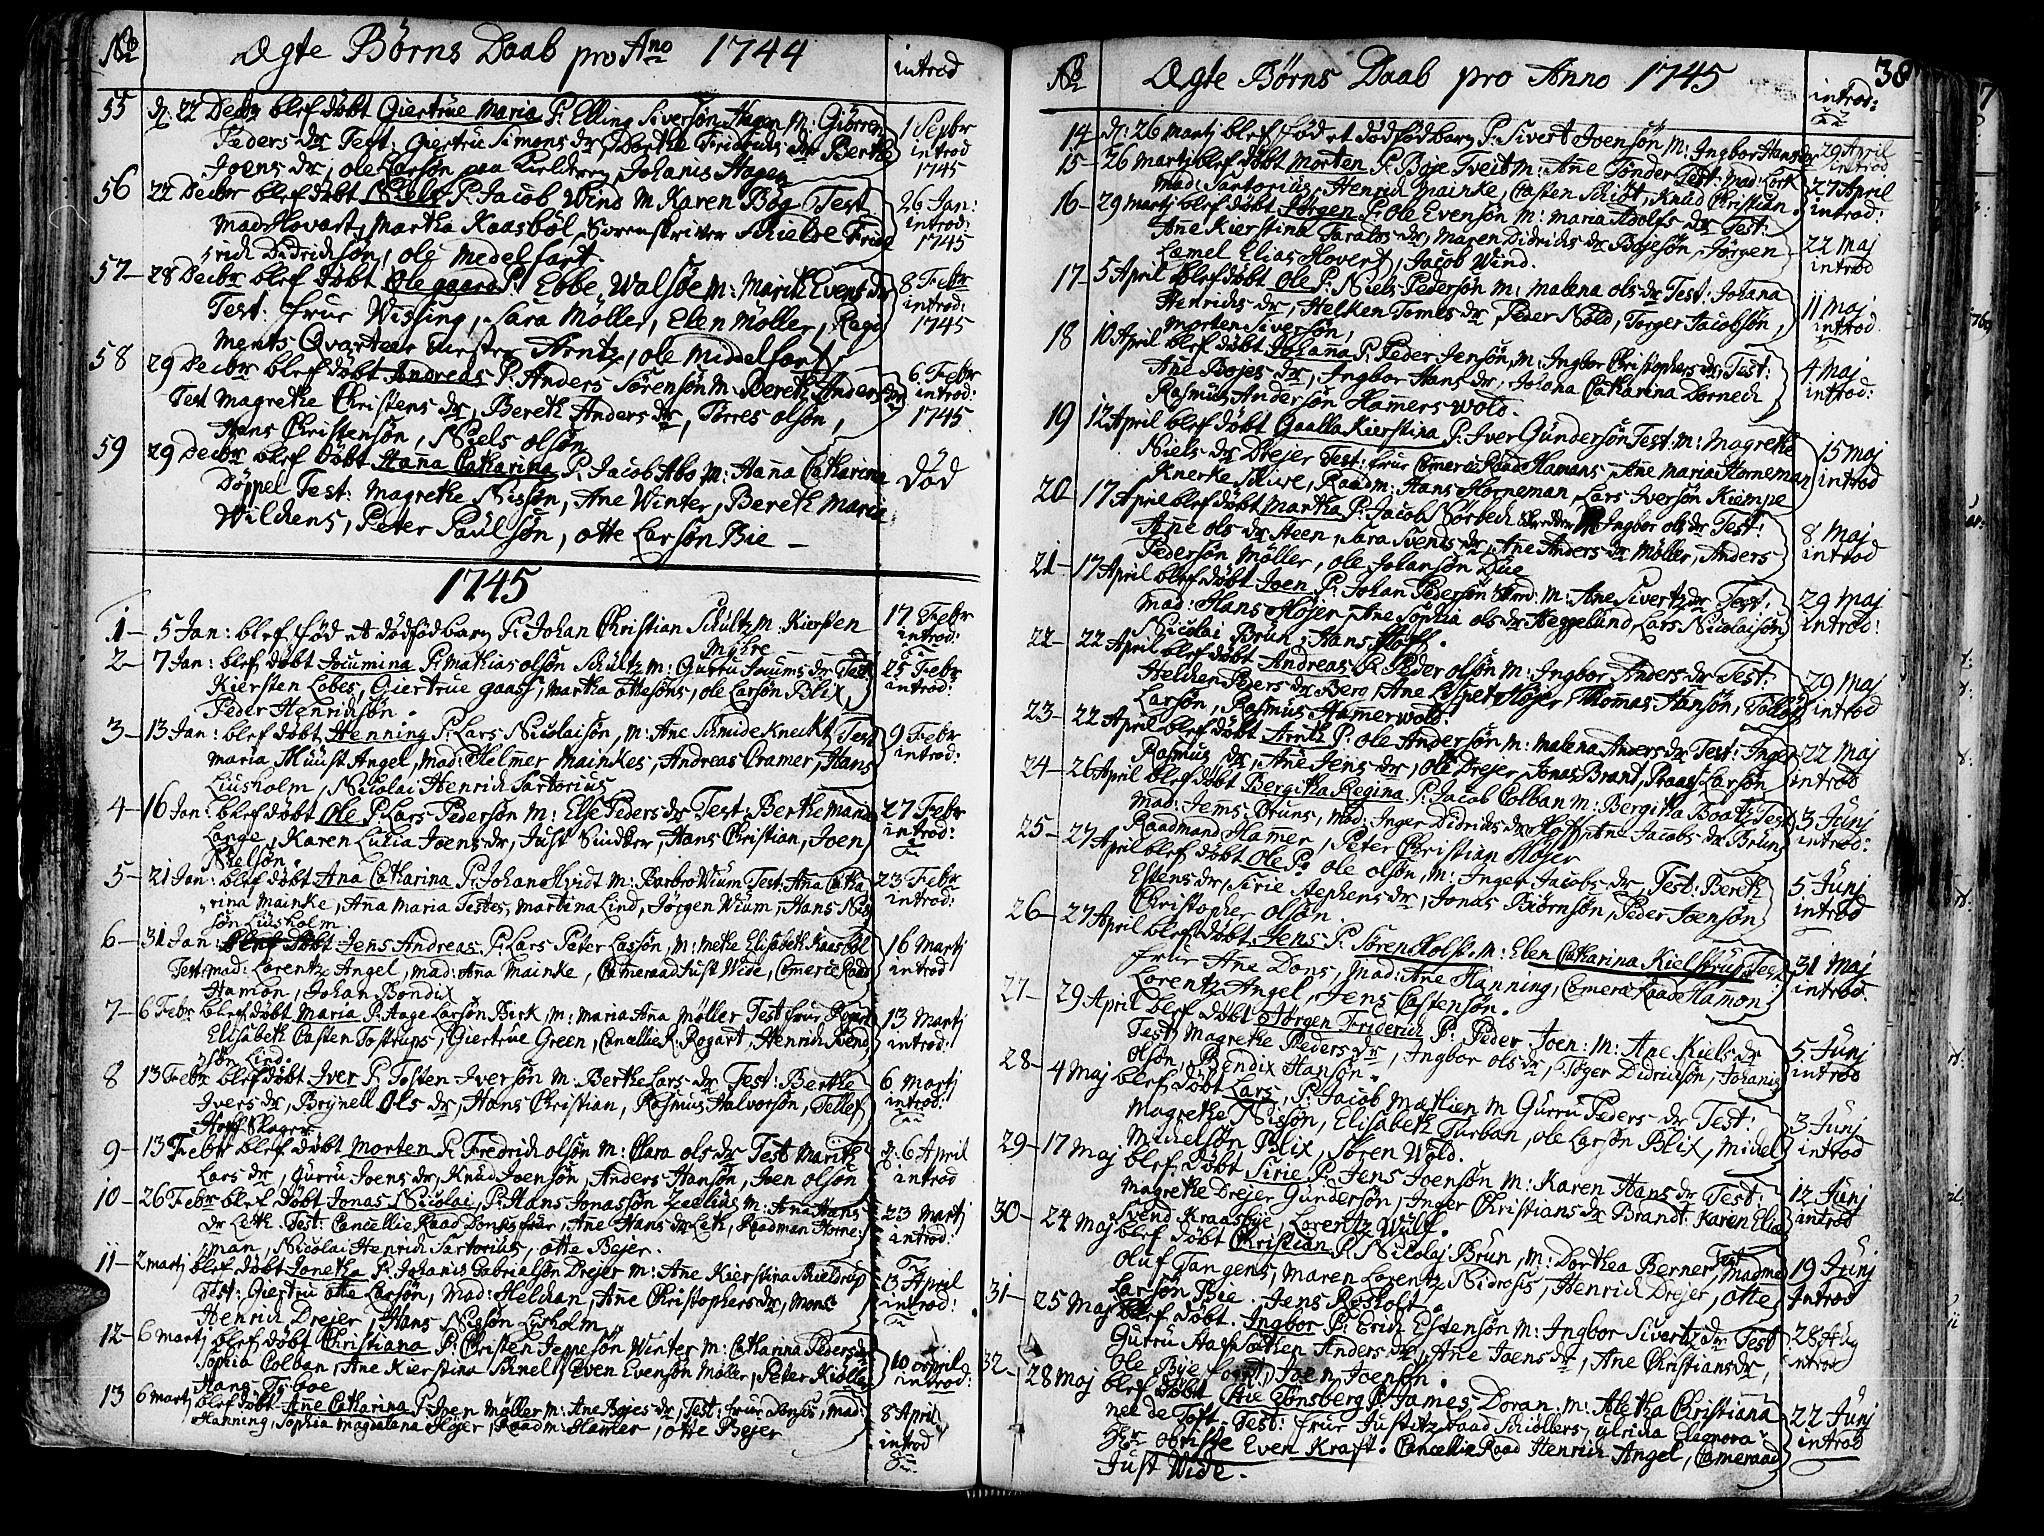 No
Ægte Børns Daab pro Ano 1744
introd
55 d. 22 Decbr blef døbt Giertrue Maria P: Elling Siversøn Hagen M: Giørren
Peders dr Test: Giertru Simens dr, Dorthe Fridrichs dr Berthe
Joens dr, ole Larsøn paa Fieldberg, Johanis Hagen
1 Febr
introd
1745
56 22 Decbr blef døbt Niels P: Jacob Wind M Karen Bøg Test
Mad Hovart, Martha Kaasbøl, Sorenskriver Schielde Fried
rich Didrichsøn, ole Medelfart.
26 Jan:
introd:
1745
57 - 28 Decbr blef døbt Ole gaard P: Ebbe Walsøe M: Marith Evens dr
Test: frue Wissing, Sara Møller, Elen Møller, Regi
ments Qvarteer mester Arntz, ole Middelfart
8 Febr
introd:
1745
58 29 Decbr blef døbt Andreas P: Anders Sørensøn M: Bereth Anders dr
Test Magrethe Christens dr, Bereth Anders dr, Torres olsøn,
Hans Christensøn, Niels olsøn
6 Febr
introd:
1745
59 29 Decbr blef døbt Hana Catharina P: Jacob Abo M: Hana Catharina
Døppel Test: Magrethe Nissøn, Ane Winter, Bereth Maria
Wilchens, Peter Paulsøn, otte Larsøn Bie -
død
1745
1 - 5 Jan: blef fød et dødfød barn P: Johan Christian Schultz M: Kiersten
Myhre
17 Febr
introd:
2 - 7 Jan: blef døbt Jocumina P: Mathias olsøn Schultz M: Gurru Jocums dr Test
Kiersten Lobes, Giertrue gaass, Martha ottesøns, ole Larsøn Blix,
Peder Henrichsøn.
25 Febr
introd:
3 - 13 Jan: blef døbt Henning P: Lars Nicolaisøn, M: Ane Schmideknecht Test
Maria Must Angel, Mad: Helmer Mainkes, Andreas Cramer, Hans
Liusholm, Nicolai Henrich Sartorius
9 Febr
introd:
4 - 16 Jan: blef døbt Ole P Lars Pedersøn M: Else Peders dr Test: Berthe Maria
Lange, Karen Lucia Joens dr, Just Sindker, Hans Christian, Joen
Nielsøn.
27 Febr
introd:
5 - 21 Jan: blef døbt Ana Catharina P: Johan Hvidt M: Barbro Wium Test: Ana Catha
rina Mainke, Ana Maria Testes, Martina Lind, Jørgen Wium, Hans Nis
søn Liusholm.
23 Febr
introd:
6 - 31 Jan: blef døbt Jens Andreas P: Lars Peter Lassøn, M: Mette Elisabeth Kaasbøl
Test: Mad: Lorentz Angel, Mad: Ana Mainke, Cameraad Just Wide, Comerie Raad
Hamon, Johan Bondix
16 Martj
introd:
7 - 6 Febr blef døbt Maria P: Aage Larsøn Birk, M: Maria Ana Møller Test frue Rogert
Elisabeth Casten Tostrups, Giertrue Green, Cancellie R: Rogart, Henrich Svend
søn Lind.
13 Martj
introd:
8 13 Febr blef døbt Iver P: Tosten Iversøn M: Berthe Lars dr Test: Berthe
Ivers dr, Brynell Ols dr, Hans Christian, Rasmus Halvorsøn, Tellef
Hoff Slager
6 Martj
introd:
9 - 13 Febr blef døbt Morten P: Fredrich olsøn M: Clara ols dr Test Marith
Lars dr, Gurru Joens dr, Knud Joensøn, Anders Hansøn, Joen olsøn
d. 6 April
introd
10 - 26 Febr blef døbt Jonas Nicolai, P: Hans Jonassøn Zeelius M: Ana Hans
dr Leth Test: Cancellie Raad Donses frue, Ane Hans dr Leth, Raadman Horne
man, Nicolai Henrich Sartorius, otte Bejer.
23 Martj
introd:
11 - 2 Martj blef døbt Janetha P: Johanis Gabrielsøn Drejer M: Ane Kierstina Schieldrup
Test: Giertru otte Larsøn, Mad: Heldan, Ane Christophers dr, Mons:
Henrich Drejer, Hans Nissøn Lysholm
13 April
introd:
12 - 6 Martj blef døbt Christiana P: Christen Jeppesøn Winter M: Catharina Peders dr
Sophia Colban, Ane Kierstina Schnel, Even Evensøn Møller, Peter Kiølle
Hans Tyboe
10 April
introd:
13 6 Martj blef døbt Ane Catharina P: Iver Møller M: Ane Bojes dr, Test: frue Donsis, Mad:
Hanning, Sophia Magdalena Høyer, Raadm: Hamer, otte Bejer
8 April
introd
No
Ægte Børns Daab pro Anno 1745
introd:
38
14 d: 26 Martj blef fød et dødfød barn P: Sivert Joensøn M: Ingbor Hans dr
29 April
introd
15 - 26 Martj blef døbt Morten P: Boje Tveit M: Ane Tønder Test: Mad: Lork
Mad: Sartorius, Henrich Mainke, Casten Schiøt, Knud Christian.
27 April
introd:
16 - 29 Martj blef døbt Jørgen P: Ole Evensøn M: Maria Adolfs dr Test:
Ane Kierstina Taralds dr, Maren Didrichs dr Bojesøn, Jørgen
Læmel Elias Hovert, Jacob Wind.
22 Maj
introd
17 - 5 April blef døbt Ole P: Niels Pedersøn M: Malena ols dr Test: Johana
Henrichs dr, Helken Tomes dr, Peder Nold, Torger Jacobsøn,
Morten Siversøn,
11 Maj
introd
18 10 April blef døbt Johana P: Peder Jensøn, M: Ingbor Christophers dr, Test:
Ane Bojes dr, Ingbor Hans dr, Johana Catharina Dornech
Rasmus Andersøn Hamerswold.
4 Maj
introd:
19 12 April blef døbt Gaalla Kierstina P: Iver Gundersøn Test M: Magrethe
Niels dr Drejer Test: frue Comerce Raad Hamans, Ane Maria Horneman
Knerke Schive, Raadm: Hans Horneman, Lars Iversøn Kiempe
15 Maj
introd
20 - 17 April blef døbt Martha P: Jacob Nørbech Skredder M Ingbor ols dr Test:
Ane ols dr Steen, Sara Svens dr, Ane Anders dr Møller, Anders
Pedersøn Møller, ole Johansøn Due
8 Maj
introd
21 - 17 April blef døbt Joen P: Johan Pedersøn M: Ane Siverts dr Test:
Mad: Hans Høyer, Ane Sophia ols dr Heggelund, Lars Nicolaisøn
Nicolai Brun, Hans Hoff.
29 Maj
introd:
22 - 22 April blef døbt Andreas P: Peder olsøn M: Ingbor Anders dr Test:
Helchen Peders dr Berg, Ane Lisbet Høyer, Thomas Hansøn, Tollof
Larsøn, Rasmus Hamerwold.
29 Maj
introd
23 - 22 April blef døbt Arnth P: ole Andersøn M: Malena Anders dr Test: Inger
Rasmus dr, Ane Jens dr, ole Drejer, Jonas Brand, Praas Larsøn
22 Maj
introd
24 - 26 April blef døbt Bergitha Regina P: Jacob Colban M: Bergitha Boath Test
Mad: Jems Bruns, Mad: Inger Didrichs dr Hoff, Jacobs dr Brun
Raadmand Hamer, Peter Christian Høyer
3 Junj
introd:
25 - 27 April blef døbt Ole P: ole olsøn, M: Inger Jacobs dr, Test: Bereth
Estens dr, Sirie Stephens dr, Jonas Biørnsøn, Peder Joensøn
Christopher olsøn.
5 Junj
introd
26 - 27 April blef døbt Jens P: Søren Holst M: Elen Catharina Kielstrup, Test
frue Ane Dons, Mad: Ane Hanning, Comerce Raad Hamon
Lorentz Angel, Jens Castensøn.
31 Maj
introd.
27 - 29 April blef døbt Jørgen Friderich P: Peder Joen: M: Ane Kiels dr
Test Magrethe Peders dr, Ingbor ols dr, Tøger Didrichsøn, Johanis
olsøn, Bendix Hansøn.
5 Junj
introd
28 - 4 Maj blef døbt Lars, P: Jacob Mathien M Gurru Peders dr Test:
Magrethe Nissøn, Elisabeth Turban, ole Larsøn Blix, Michel
Michelsøn Blix, Søren Wold.
3 Junj
introd
29 - 17 Maj blef døbt Sirie P: Jens Joensøn M: Karen Hans dr Test:
Magrethe Drejer Gundersøn, Inger Christians dr Brandt, Karen Elia
Svend Kraasbye, Lorentz Wulf.
12 Junj
introd
30 - 24 Maj blef døbt Christian P: Nicolaj Brun, M: Dorthea Berner Test Madme
oluf Tangens, Maren Lorentz Nidrosis, Henrich Drejer, otte
Larsøn Bie. Jens Røsholt.
19 Junj
Introd
31 - 25 Maj blef døbt. Ingbor P: Erich Estensøn M: Ingbor Siverts dr Test
Gurru Anders dr, Ane Joens dr, Ane Christians dr,
Ole Bye fogt, Joen Joensøn.
28 Aug
introd
32 - 28 Maj blef døbt Eie Tønsberg P: James Doran M: Aletha Christiana
nee de Toft. Test: frue Justitz Raad Schiøllers, Ulrica Eleonora
Hr obriste Even Kraft. Cancellie Raad Henrich Angel, Cameraad
Just Wide.
22 Junj
introd